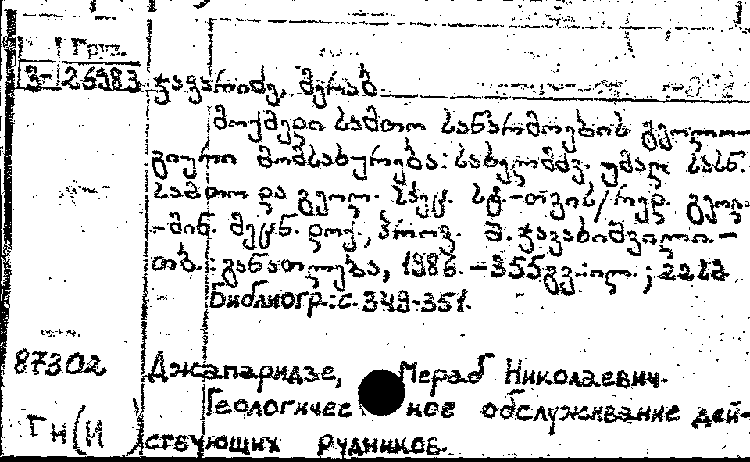 Груз.
3- 26983
ჯაფარიძე, მერაბ.
მოქმედი სამთო საწარმოების გეოლო-
გიური მომსახურება: სახელმძღ. უმაღ. სასწ.
სამთო და გეოლ. სპეც. სტ-თვის/რედ. გეოლ.
-მინ. მეცნ. დოქ., პროფ. მ. ჯავახიშვილი.-
თბ.: განათლება, 1986. -355გვ.:ილ.; 22სმ
Библиогр.: с. 349-351.
87302
Джапаридзе, Мераб Николаевич.
Геологическое обслуживание дей-
ствующих рудников.
ГН(И )